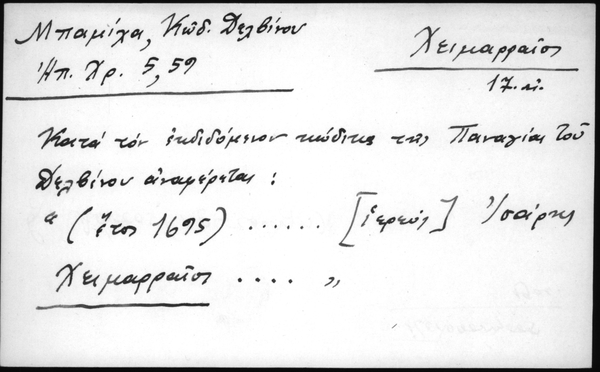 Μπαμίχα, Κῶδ. Δελβίνου
Ἠπ. Χρ. 5, 59
Χειμαρραῖοι
17. αἰ.
Κατά τόν ἐκδιδόμενον κώδικα τῆς Παναγίας τοῦ
Δελβίνου ἀναφέρεται :
" (ἔτος 1695) ...... [ἱερεύς]
Χειμαρραῖοι .... "